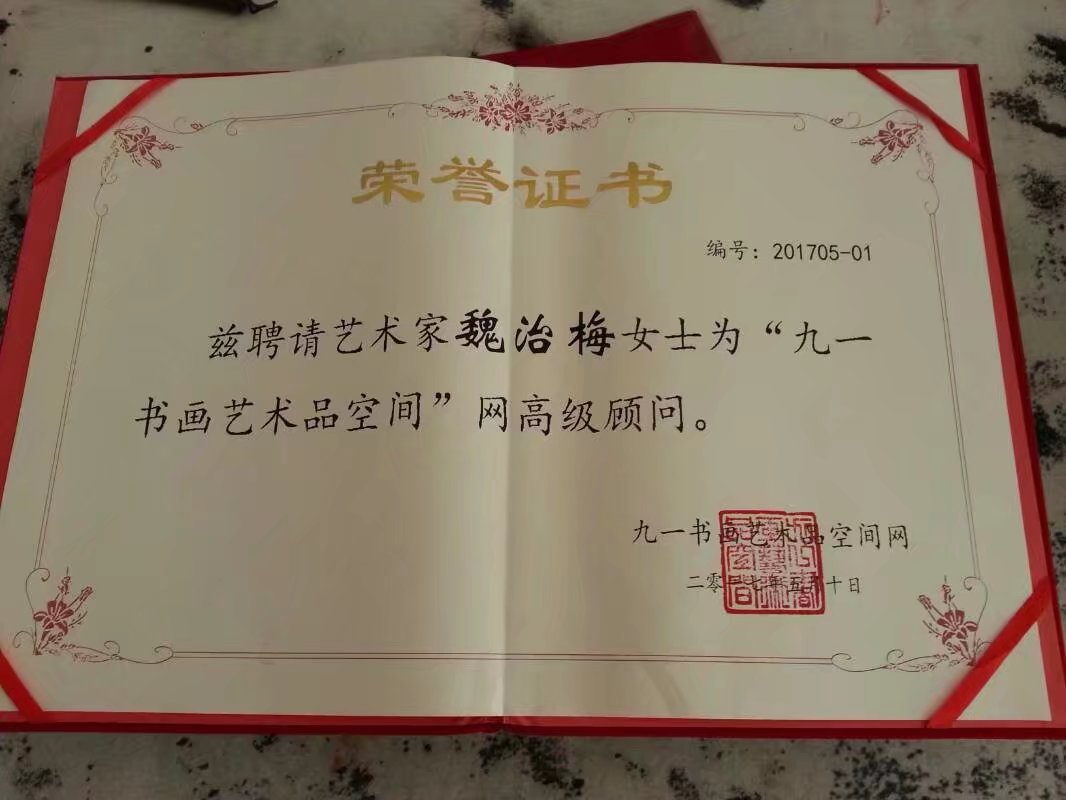 荣誉证书
编号：201705-01
兹聘请艺术家魏治梅女士为“九一
书画艺术品空间”网高级顾问。
九一书画艺术品空间网
二零一七年五月十日